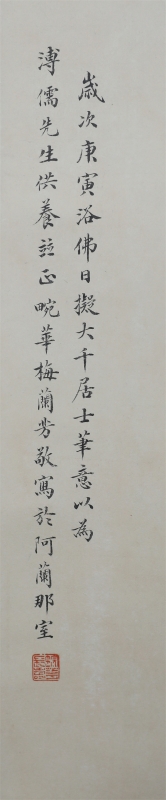 歲次庚寅浴佛日擬大千居士筆意以為
溥儒先生供養並正畹華梅蘭芳敬寫於阿蘭那室